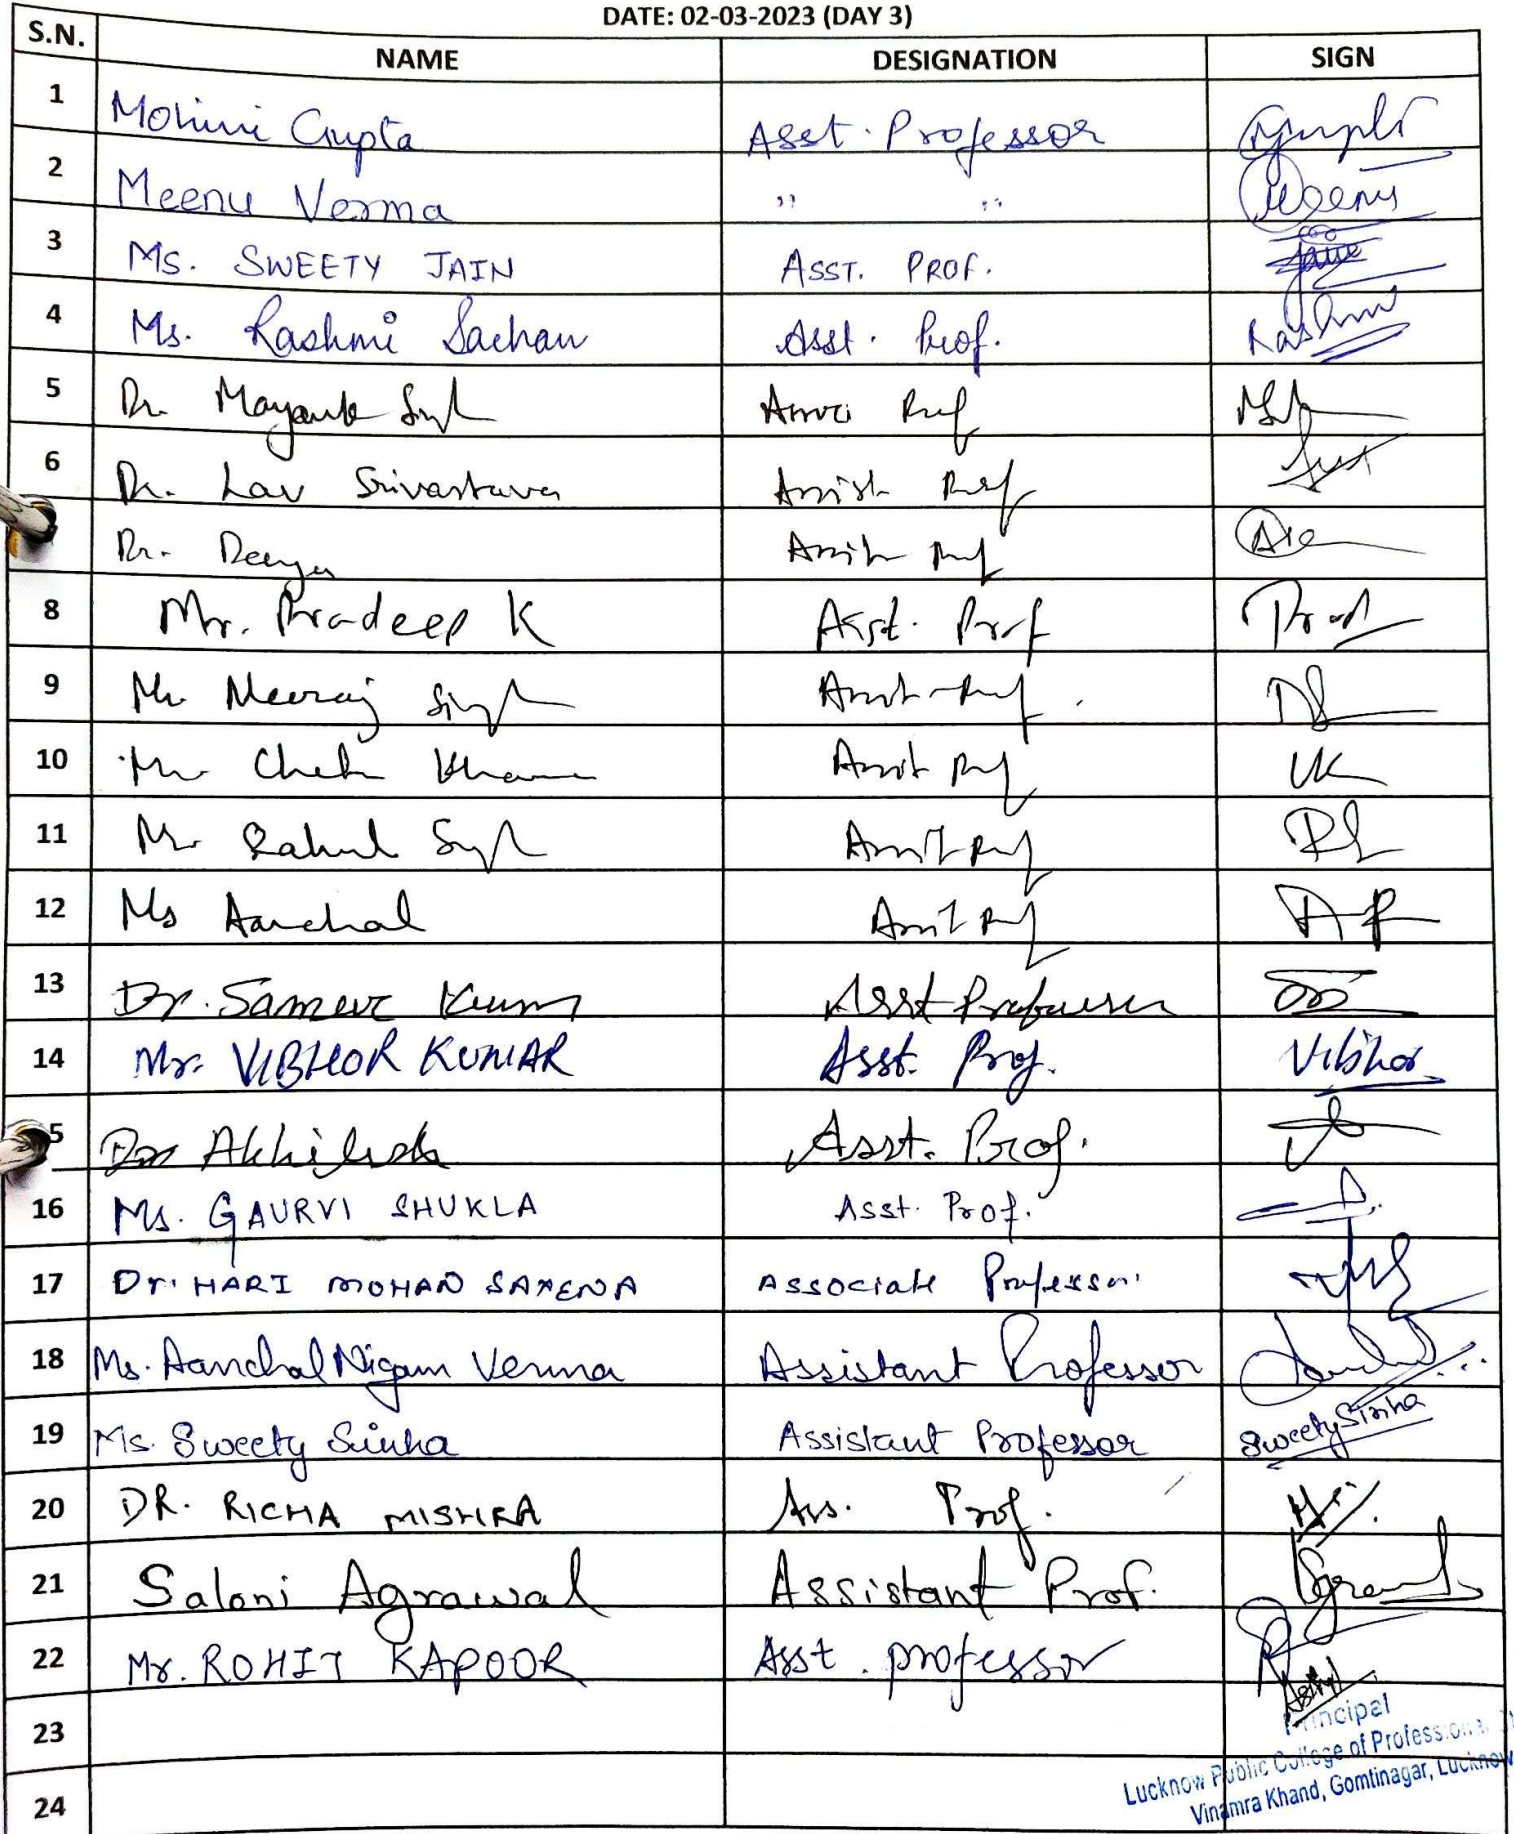 DATE: 02-03-2023 (DAY 3)
S.N. NAME DESIGNATION SIGN
1 Mohini Gupta Asst. Professor
2 Meenu Verma " " Meenu
3 Ms. SWEETY JAIN ASST. PROF.
4 Ms. Rashmi Sachan Asst. Prof. Rashmi
5 Dr. Mayank Singh Prof
6 Dr. Lav Srivastava Assist Prof
Dr. Assist Prof
8 Mr. Pradeep K Asst. Prof Prad
9 Mr Neeraj Singh Assit Prof
10 Mr Khan Assit Prof
11 Mr Rahul Singh Assit Prof
12 Ms Aanchal Assit Prof
13 Dr. Sameer Kumar Asst Professor
14 Mr. VIBHOR KUMAR Asst. Prof. Vibhor
5 Dr Akhilesh Asst. Prof.
16 Ms. GAURVI SHUKLA Asst. Prof.
17 Dr. HARI MOHAN SAXENA Associate Professor
18 Ms. Aanchal Nigam Verma Assistant Professor
19 Ms. Sweety Sinha Assistant Professor Sweety Sinha
20 DR. RICHA MISHRA Ass. Prof.
21 Saloni Agrawal Assistant Prof.
22 Mr. ROHIT KAPOOR Asst. professor
23
24
Principal
Lucknow Public College of Professional
Vinamra Khand, Gomtinagar, Lucknow